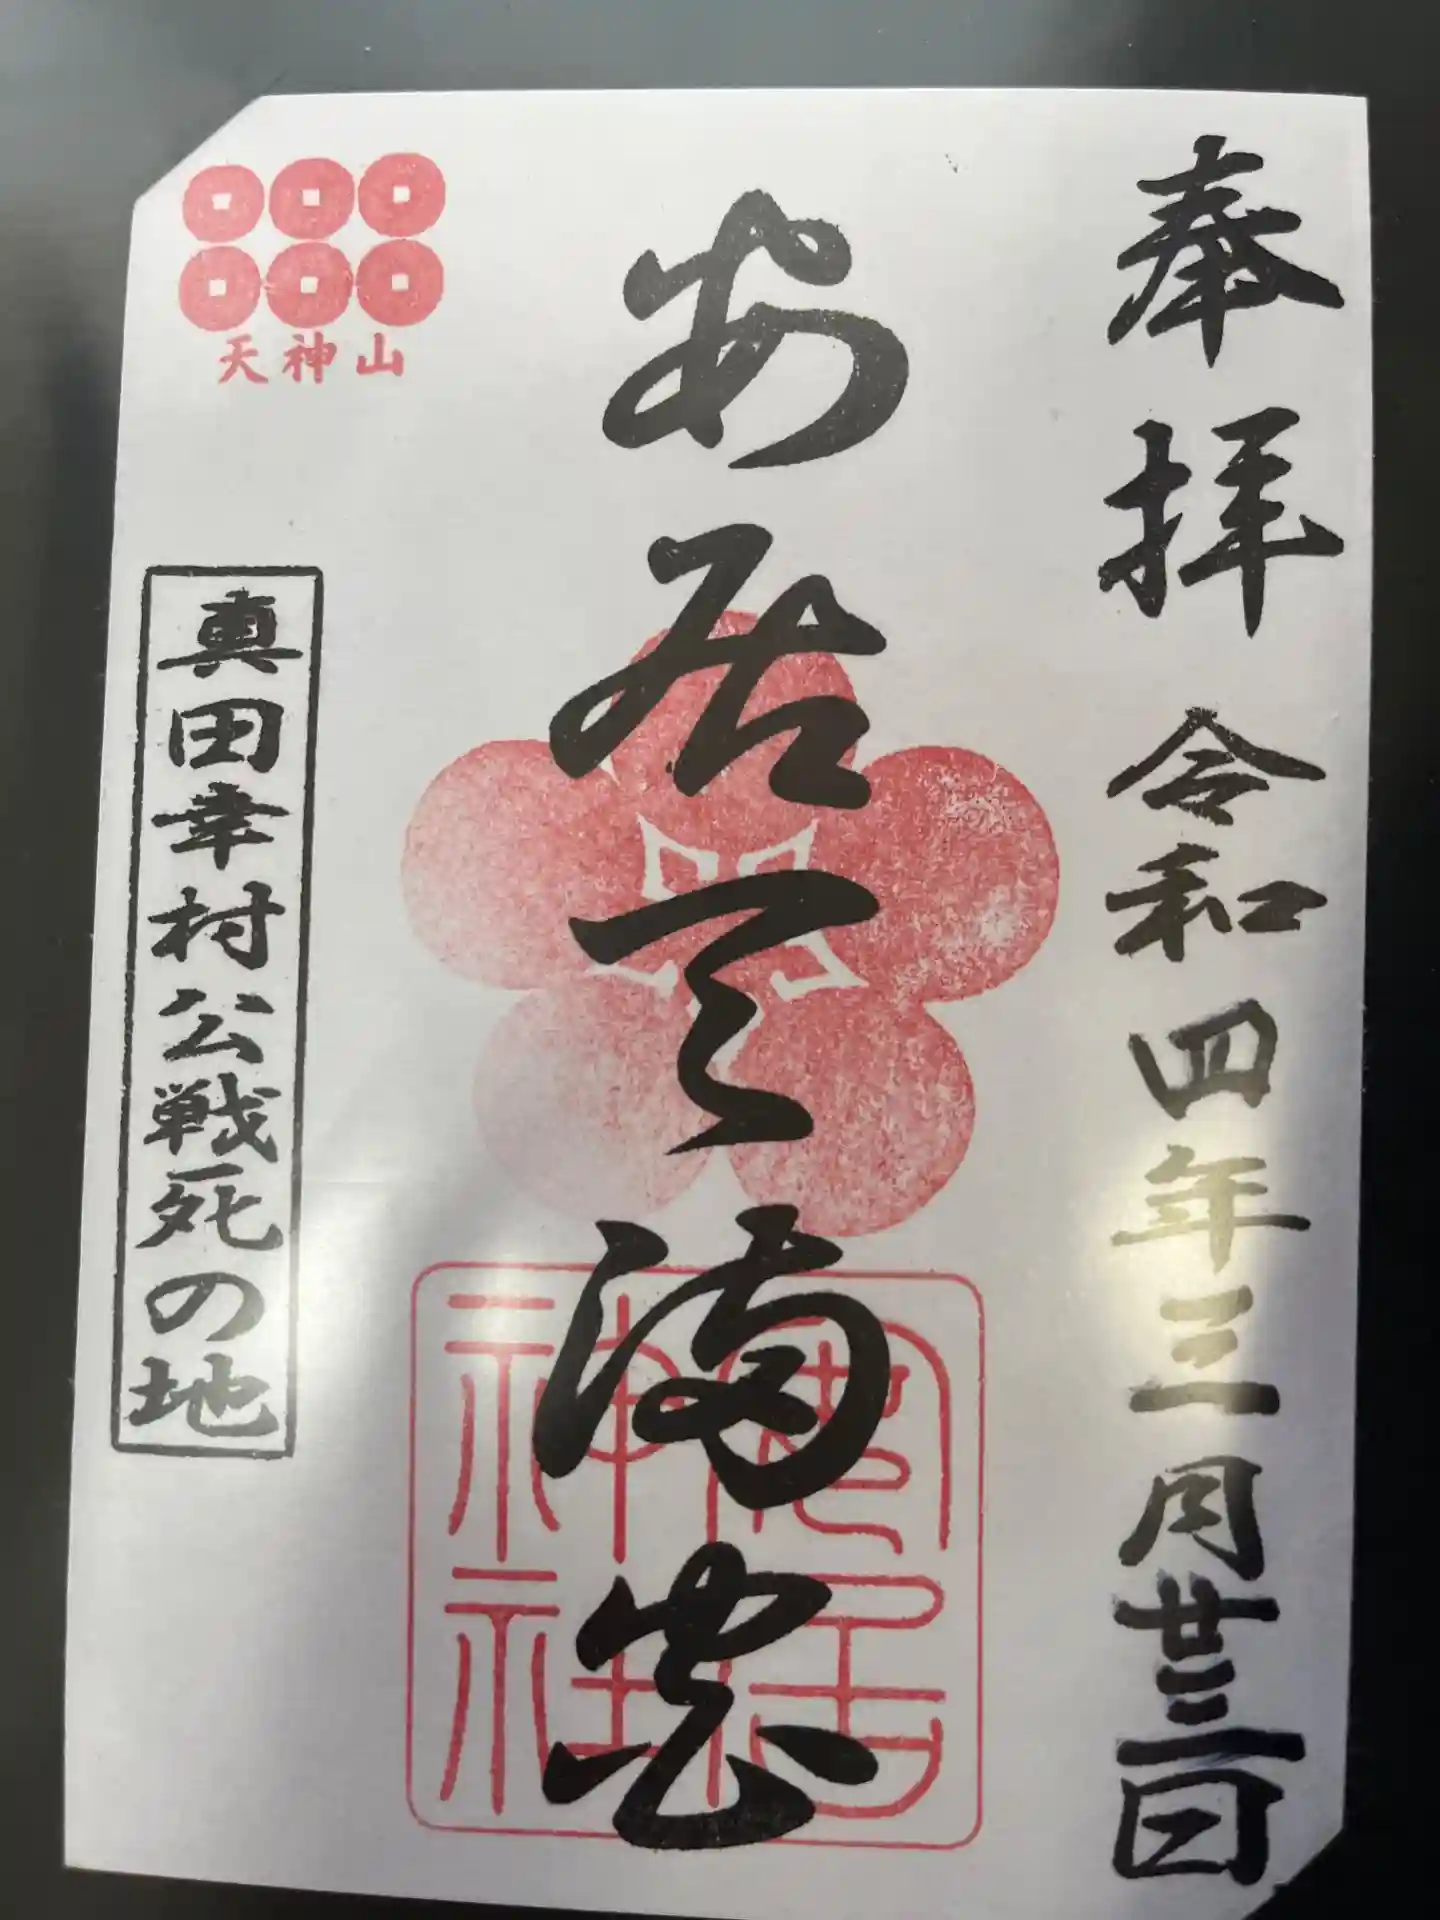 奉拝 令和四年三月廿三日
安居天満宮
安居
神社
天神山
真田幸村公戦死の地